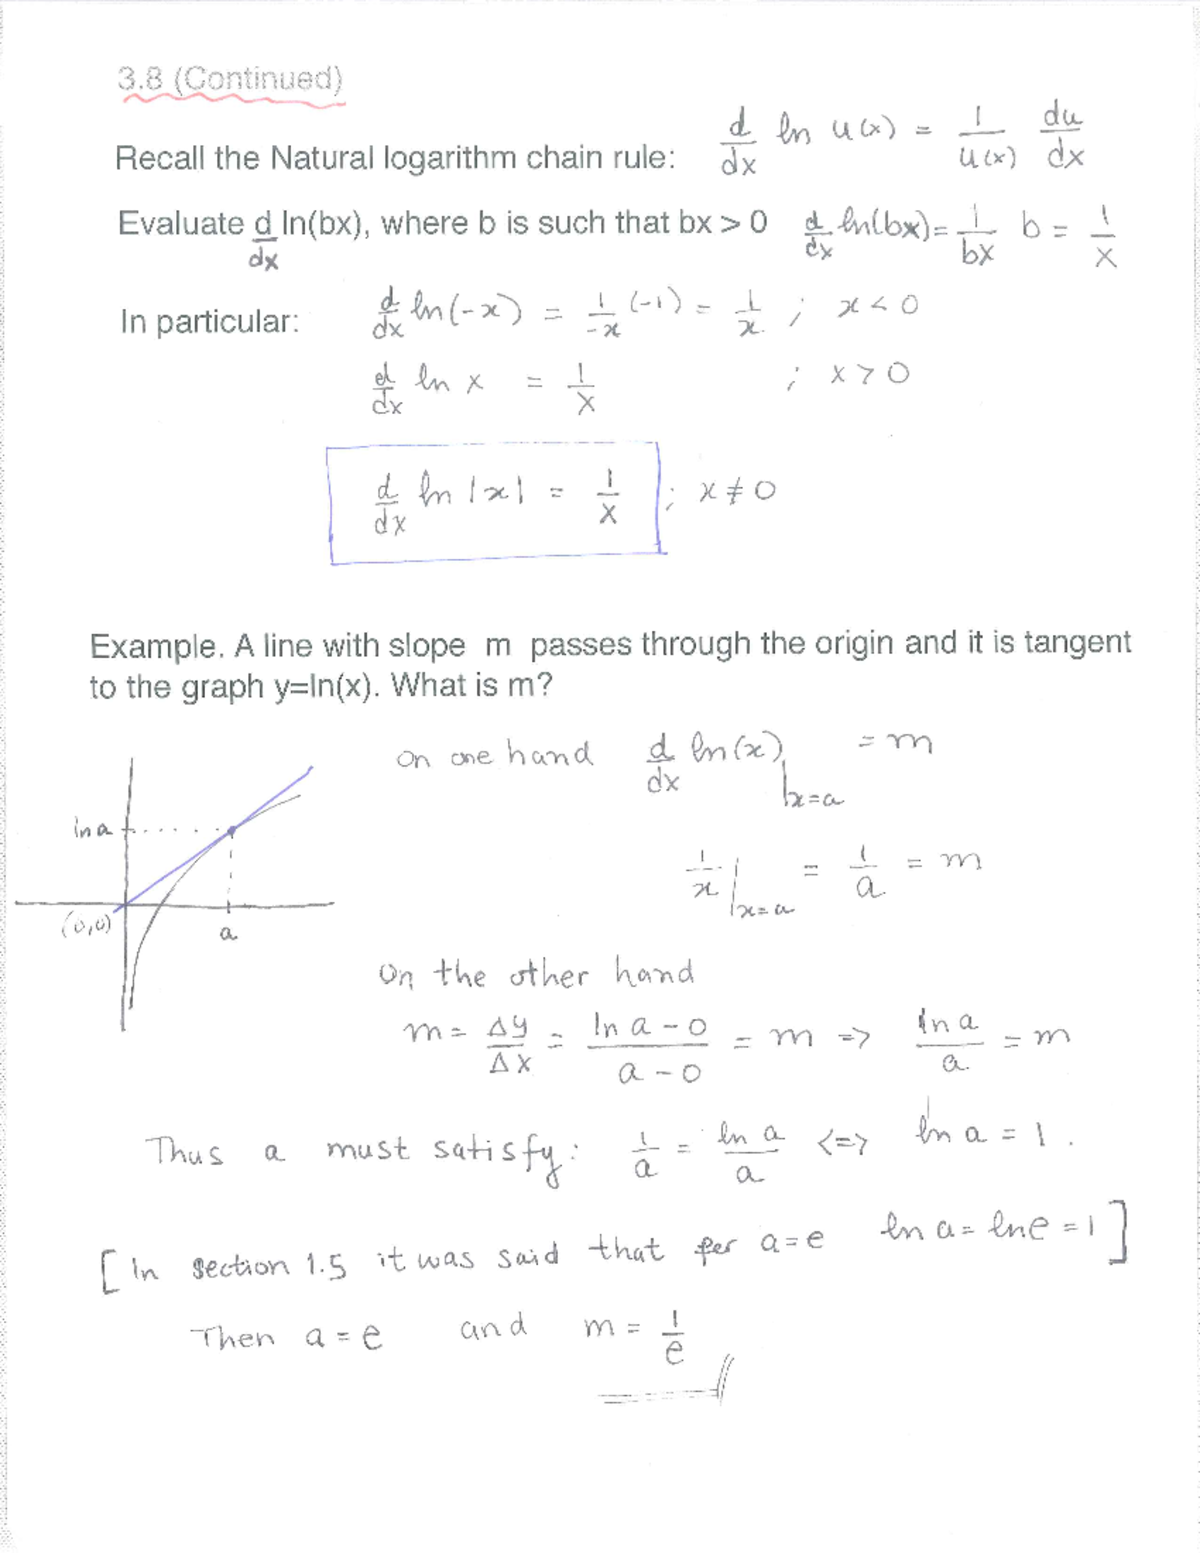 3.8 (Continued)
Recall the Natural logarithm chain rule: d/dx ln u(x) = 1/u(x) du/dx
Evaluate d/dx ln(bx), where b is such that bx > 0 d/dx ln(bx) = 1/bx b = 1/x
In particular: d/dx ln(-x) = 1/-x (-1) = 1/x ; x < 0
d/dx ln x = 1/x ; x > 0
d/dx ln |x| = 1/x ; x ≠ 0
Example. A line with slope m passes through the origin and it is tangent
to the graph y=ln(x). What is m?
On one hand d/dx ln(x)|x=a = m
ln a
1/x |x=a = 1/a = m
(0,0)
a
On the other hand
m = Δy/Δx = ln a - 0/a - 0 = m => ln a/a = m
Thus a must satisfy: 1/a = ln a/a <=> ln a = 1.
[In section 1.5 it was said that for a=e ln a = ln e = 1]
Then a = e and m = 1/e